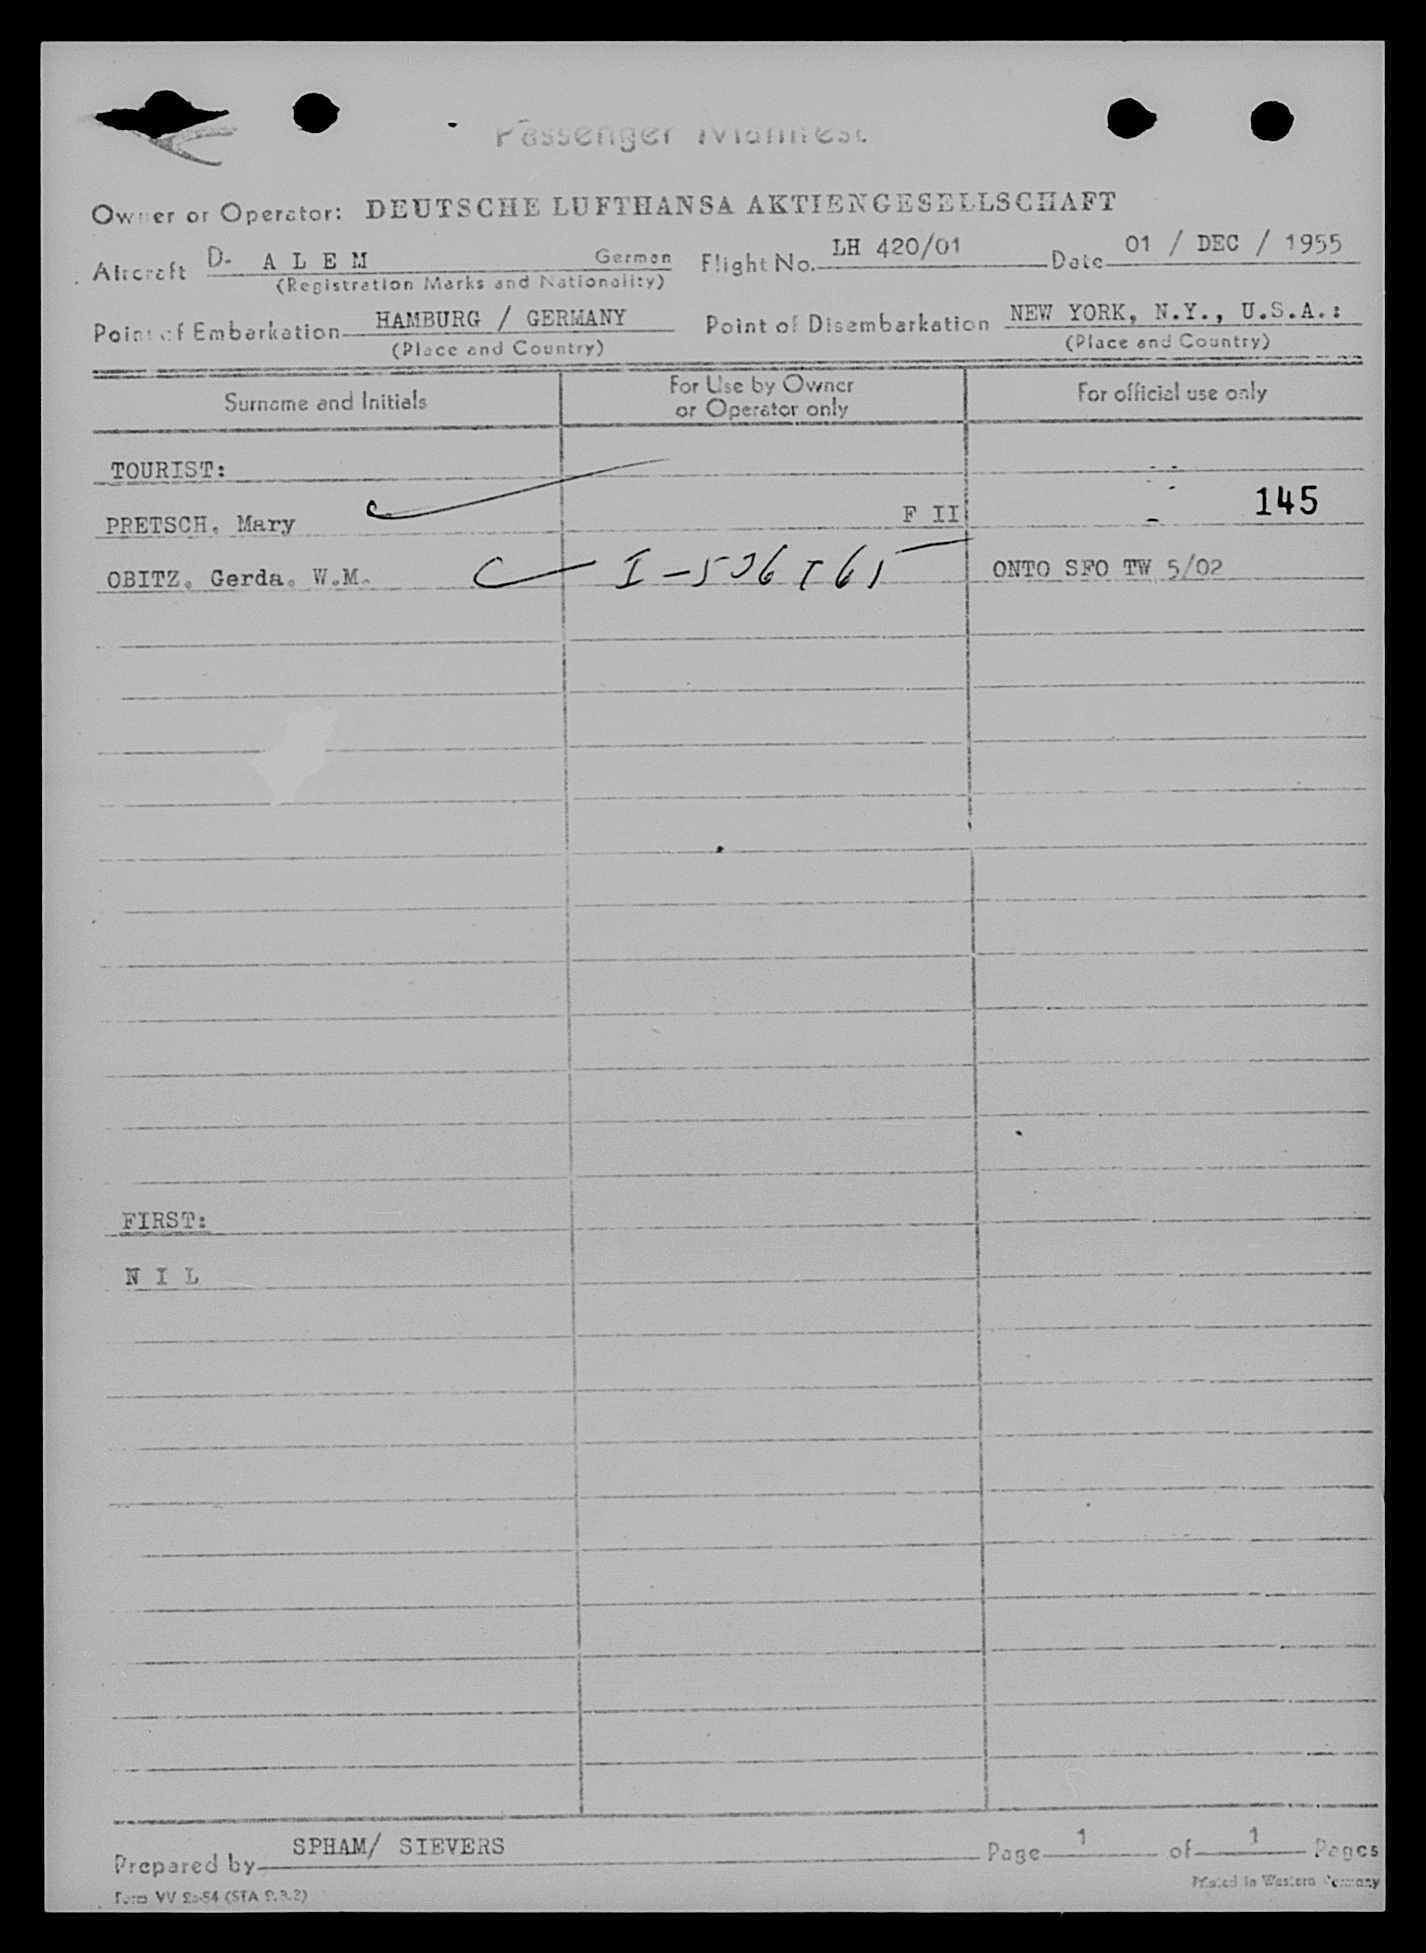 Passenger Manifest
Owner or Operator: DEUTSCHE LUFTHANSA AKTIENGESELLSCHAFT
Aircraft D- A L E M German Flight No. LH 420/01 Date 01 / DEC / 1955
(Registration Marks and Nationality)
Point of Embarkation HAMBURG / GERMANY Point of Disembarkation NEW YORK, N.Y., U.S.A.:
(Place and Country) (Place and Country)
Surname and Initials For Use by Owner or Operator only For official use only
TOURIST:
PRETSCH, Mary F II 145
OBITZ, Gerda. W.M. ONTO SFO TW 5/02
FIRST:
N I L
Prepared by SPHAM/ SIEVERS Page 1 of 1 Pages
Printed in Western Germany
Form VV